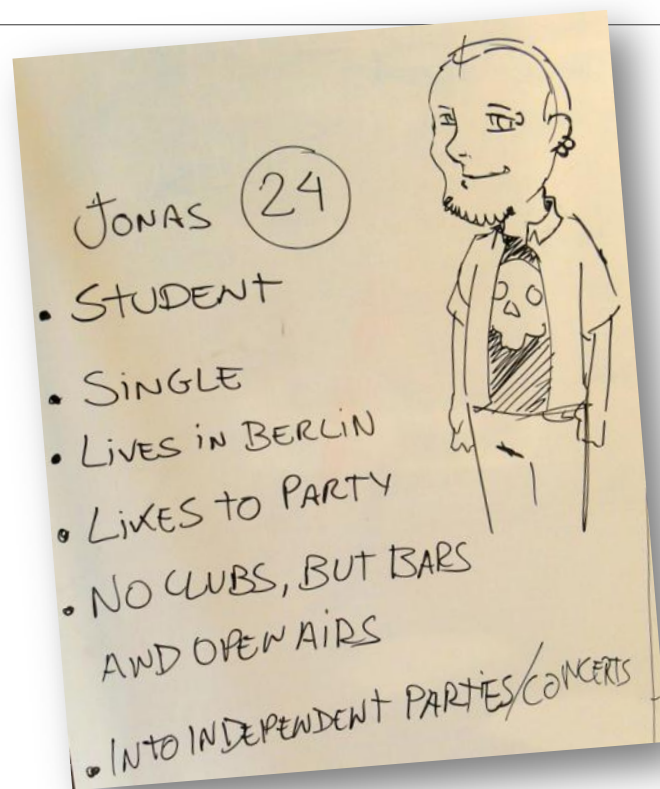 JONAS 24
• STUDENT
• SINGLE
• LIVES IN BERLIN
• LIKES TO PARTY
• NO CLUBS, BUT BARS
AND OPEN AIRS
• INTO INDEPENDENT PARTIES/CONCERTS